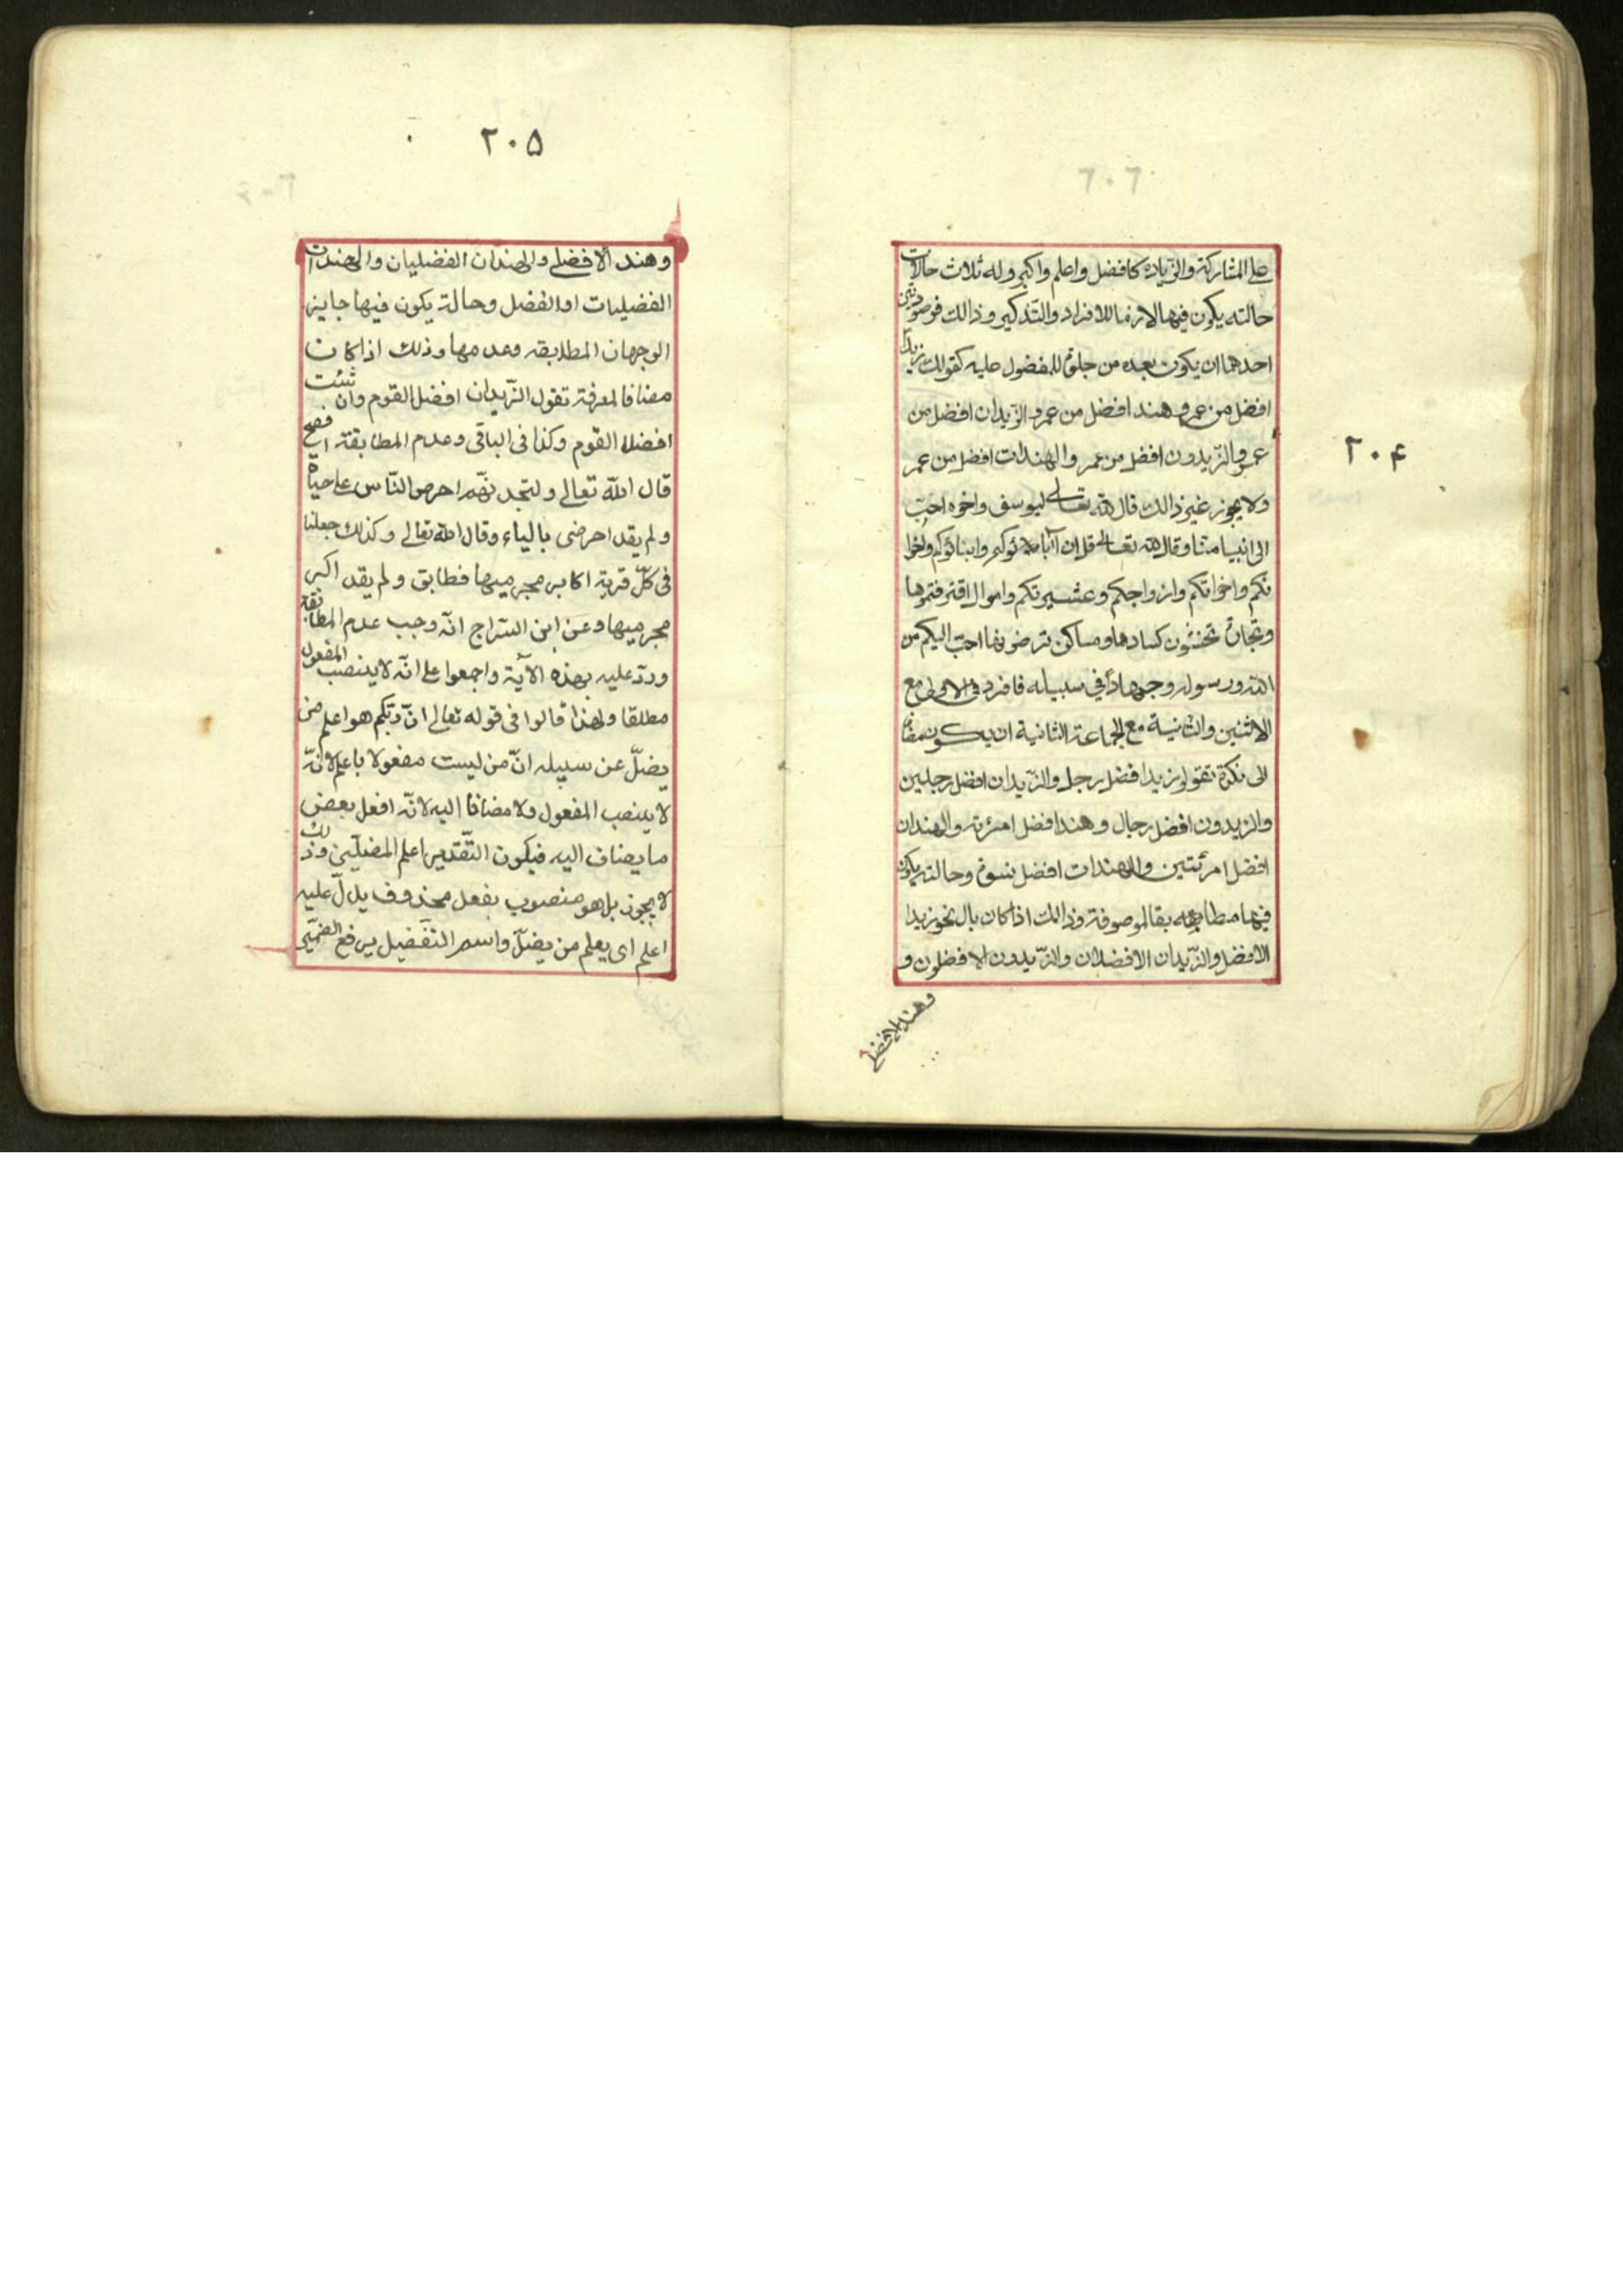 على المشاركة والزّيادة كافضل واعلم واكبر وله ثلاث حالات
حالته يكون فيها لازما للافراد والتّذكير وذالك فى صورتين
احدهما ان يكون بعده من جلوة للمفضول عليه كقولك زيدا
افضل من عمرو هند افضل من عمرو الزّيدان افضل من
عمرو والزّيدون افضل من عمر والهندات افضل من عمر
ولا يجوز غير ذالك قال الله تعالى ليوسف واخوه احبّ
الى ابينا منّا وقال الله تعالى قل ان آباؤكم وابناؤكم واخوا
نكم واخواتكم وازواجكم وعشيرتكم واموال اقترفتموها
وتجارة تخشون كسادها ومساكن ترضونها احبّ اليكم من
الله ورسوله وجهاد في سبيله فافرد فى الاولى مع
الاثنين والثانية مع الجماعة الثانية ان يكون مضافا
الى نكرة تقول زيدا افضل رجل والزّيدان افضل رجلين
والزيدون افضل رجال وهندا افضل امرئة والهندان
افضل امرئتين والهندات افضل نسوة وحالته يكون
فيها مطابقه لموصوفة وذالك اذا كان بال نحو زيدا
الافضل والزّيدان الافضلان والزّيدون الافضلون و
وهند الافضلے
٢٠۴
٢٠۵
وهند الافضلے والهندان الفضليان والهندات
الفضليات او الفضل وحالة يكون فيها جايز
الوجهان المطابقه وعدمها وذلك اذا كان
مضافا لمعرفة تقول الزّيدان افضل القوم وان شئت
افضلا القوم وكذا فى الباقى وعدم المطابقة افصح
قال اللّه تعالى ولتجدنّهم احرص النّاس على حياة
ولم يقل احرصى بالياء وقال الله تعالى وكذلك جعلنا
فى كلّ قرية اكابر مجرميها فطابق ولم يقل اكبر
مجرميها وعن ابن السّراج انّه وجب عدم المطابقة
وردّ عليه بهذه الآية واجمعوا على انّه لا ينصب المفعول
مطلقا ولهذا قالوا فى قوله تعالى انّ ربّكم هو اعلم من
يضلّ عن سبيله انّ من ليست مفعولا باعلم لانّه
لا ينصب المفعول ولا مضافا اليه لانّه افعل بعض
ما يضاف اليه فيكون التّقدير اعلم المضلّين وذلك
لا يجوز بل هو منصوب بفعل محذوف يدلّ عليه
اعلم اى يعلم من يضلّ واسم التّفضيل يرفع الضّمير